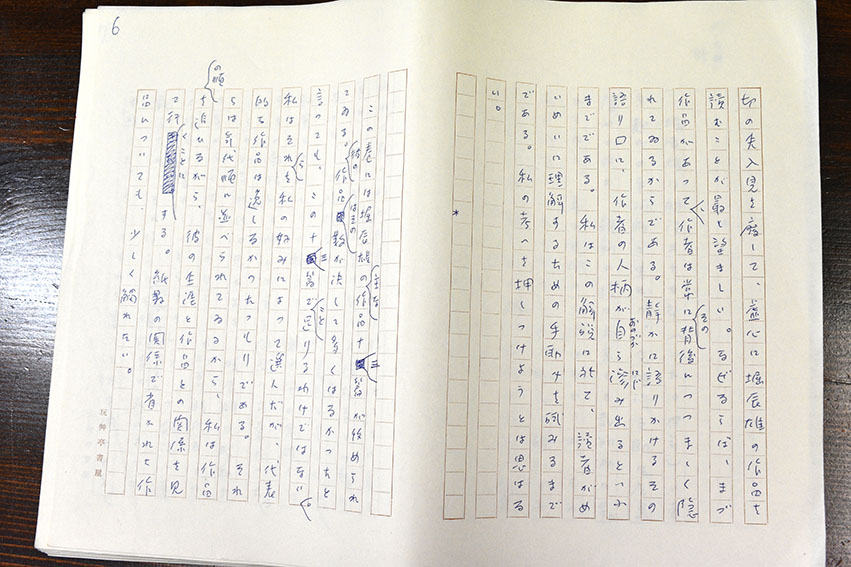 切の先入見を廃して、虚心に堀辰雄の作品を
読むことが最も望ましい。なぜならば、まづ
作品があつて、作者は常にその背後につつましく隠
れてゐるからである。静かに語りかけるその
語り口に、作者の人柄が自ら滲み出るといふ
までである。私はこの解説に於て、読者がめ
いめいに理解するための手助けを試みるまで
である。私の考へを押しつけようとは思はな
い。
*
6
この巻には堀辰雄の主な作品十三篇が収められ
てゐる。彼の作品はその数が決して多くはなかつたと
言つても、この十三篇でこと足りるわけではない。
私はそれらを私の好みによつて選んだが、代表
的な作品は逸しなかつたつもりである。それ
らは年代順に並べられてゐるから、私は作品
の順を追ひながら、彼の生涯と作品との関係を見
て行くことにする。紙数の関係で省かれた作
品についても、少しく触れたい。
玩艸亭書屋